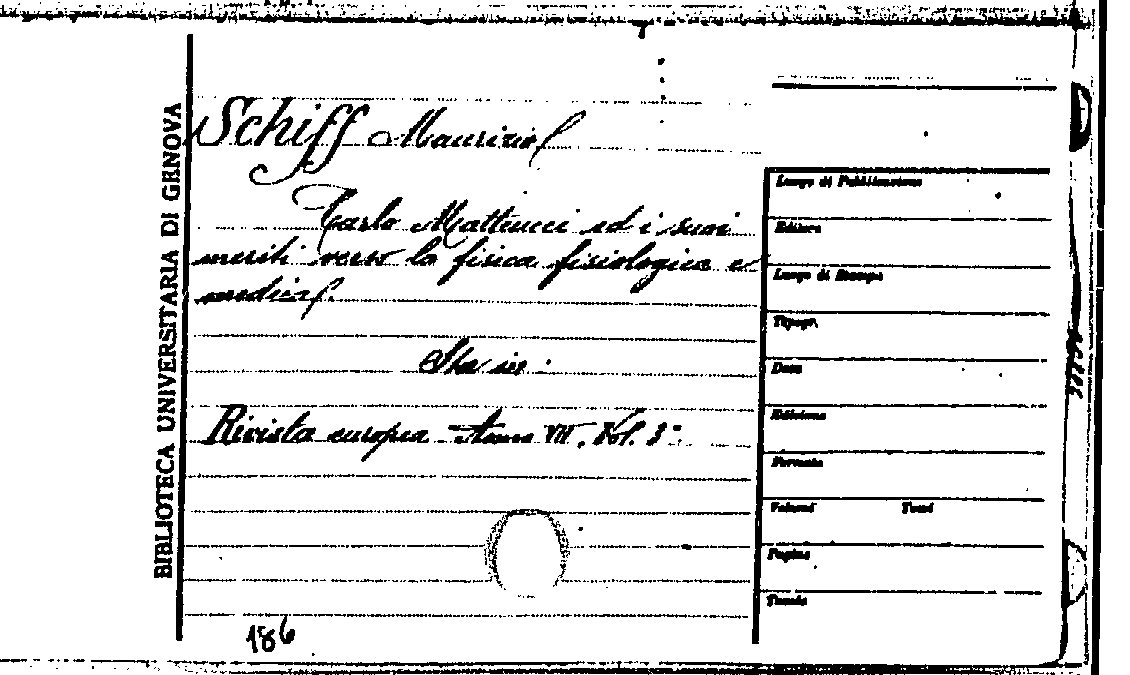 BIBLIOTECA UNIVERSITARIA DI GENOVA
Schiff Maurizio
Carlo Matteucci ed i suoi
meriti verso la fisica fisiologica e
medica.
Sta in:
Rivista europea Anno VII, Vol. 3º.
186
Luogo di Pubblicazione
Editore
Luogo di Stampa
Tipogr.
Data
Edizione
Formato
Volumi Tomi
Pagine
Tavole